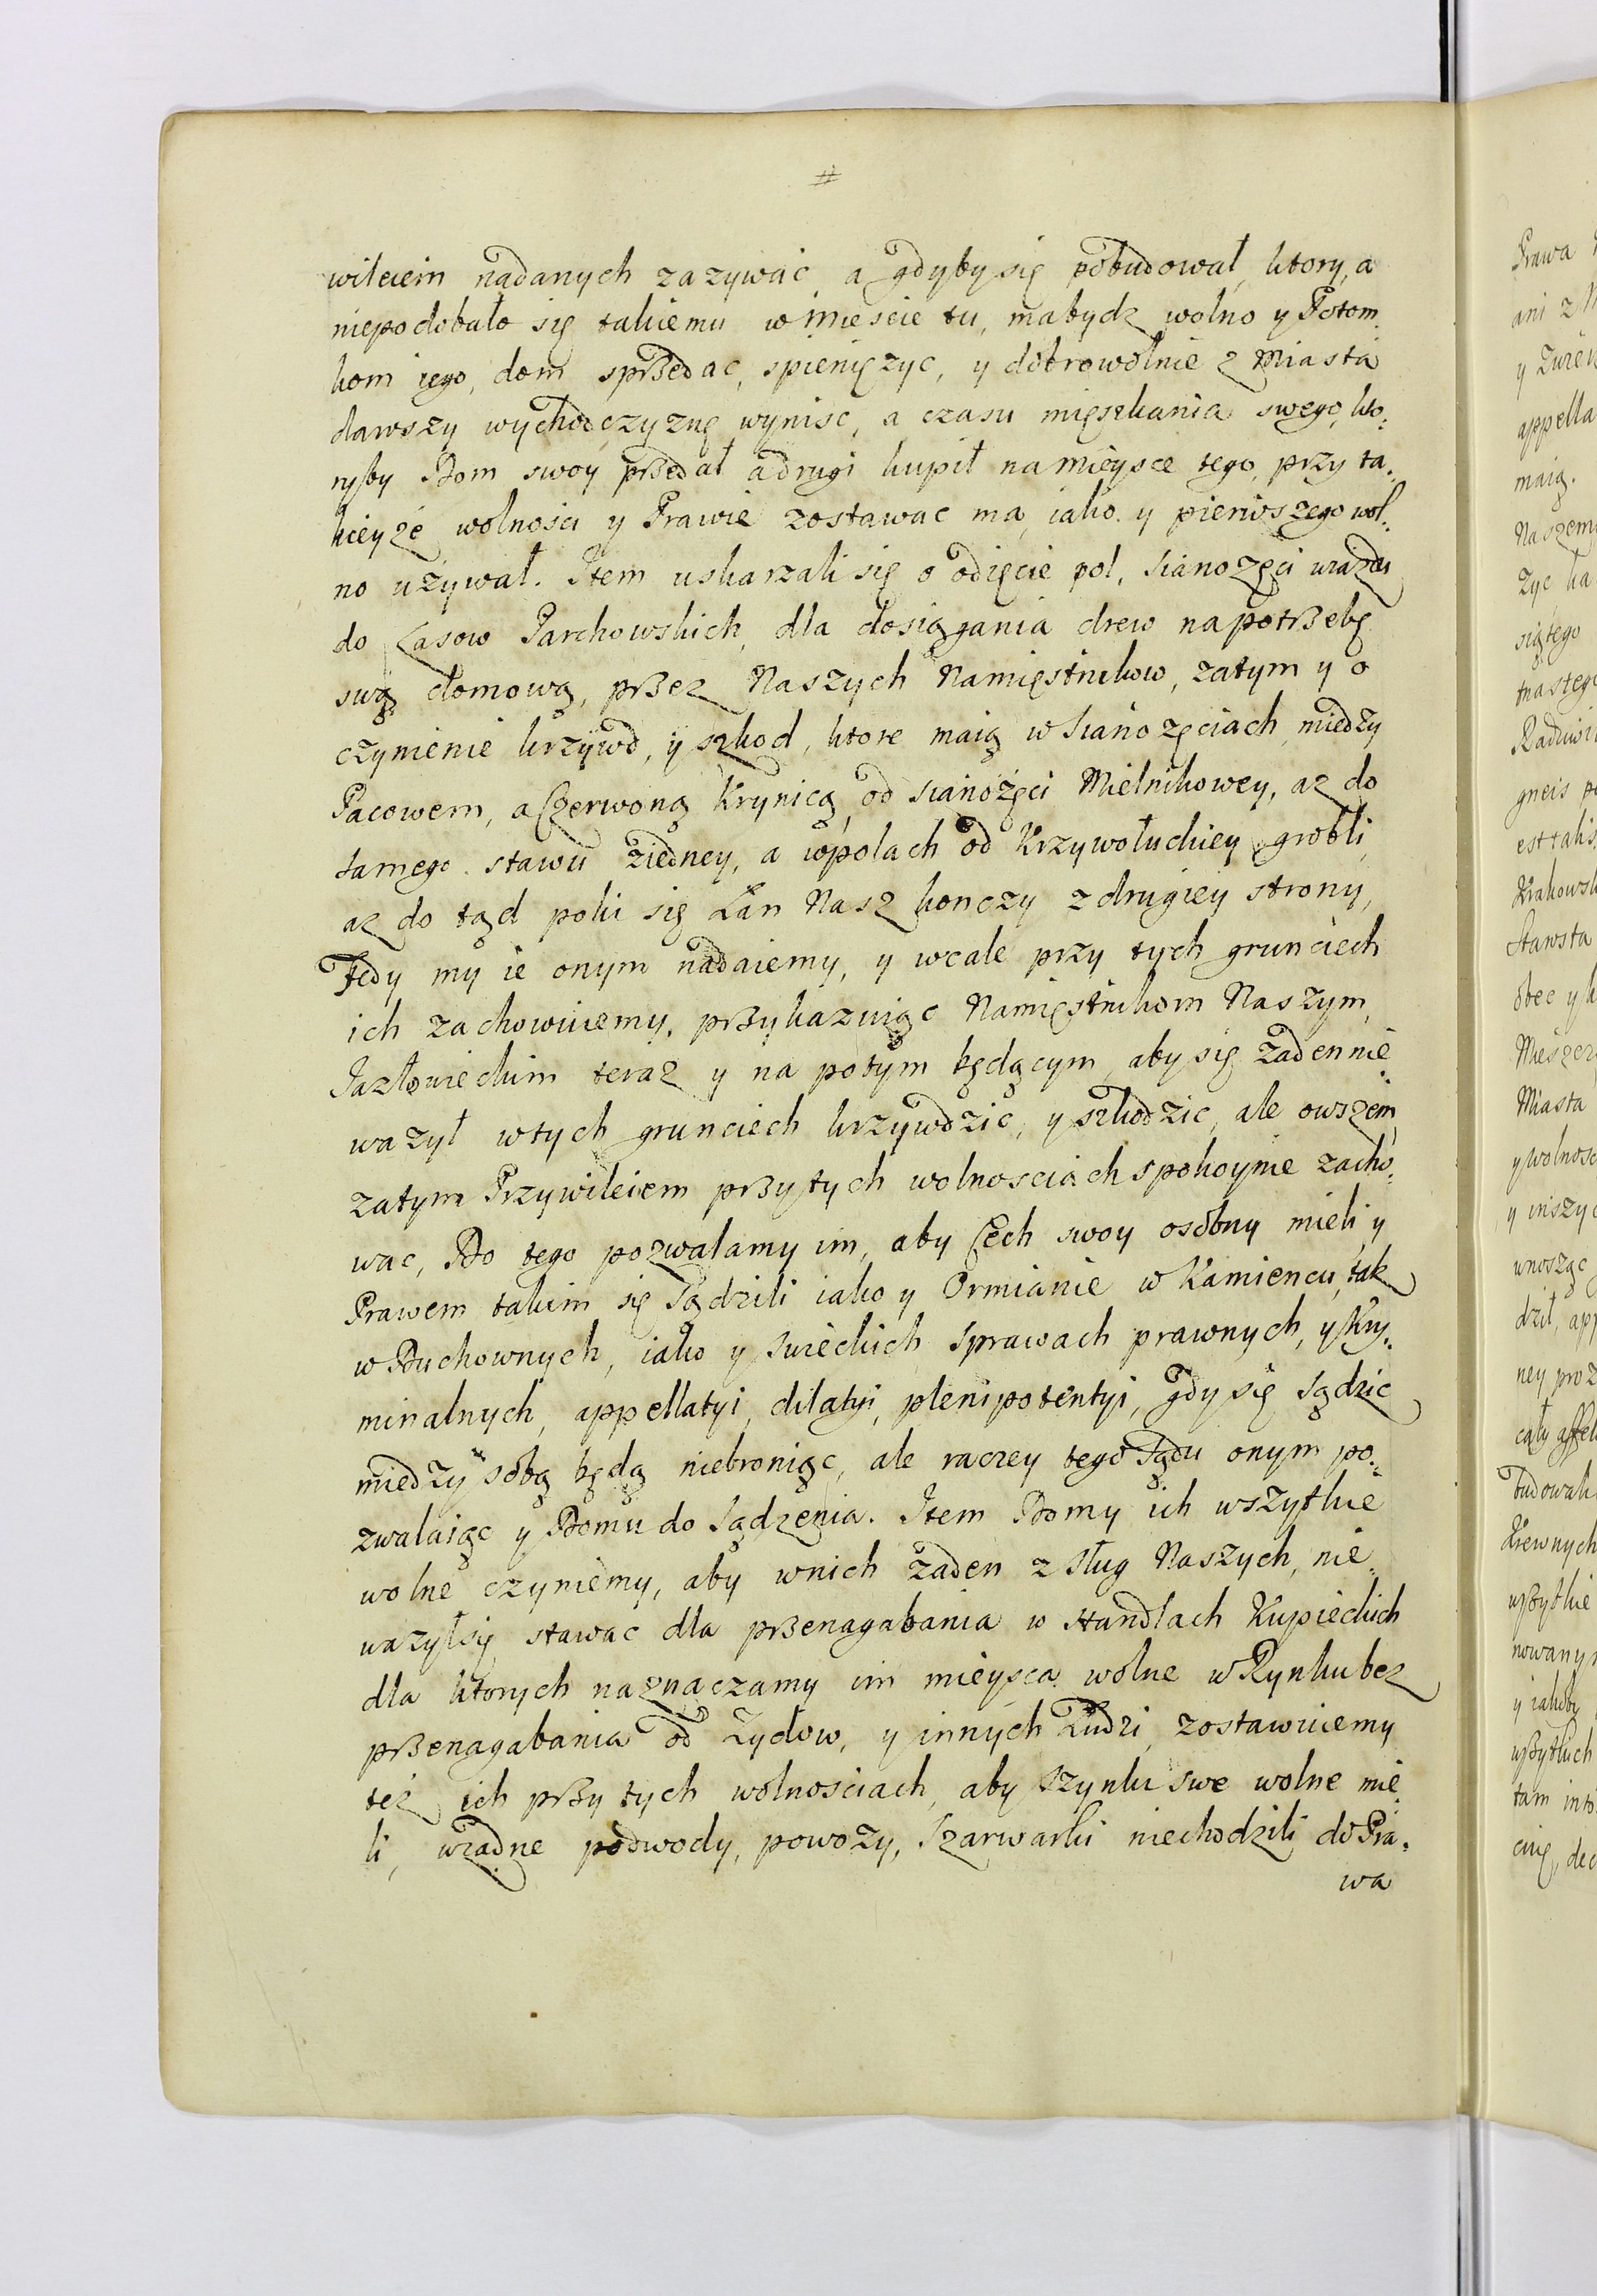 #
wileiem nadanych zazywac, a gdyby się pobudował, ktory, a
niepodobało się takiemu w Miescie tu, mabydz wolno y Potom:
kom iego, dom sprzedac, spieniężyc, y dobrowolnie z Miasta
dawszy wychodczyznę wynisc, a czasu mięszkania swego, kto:
ryby Dom swoy przedał a drugi kupił na mieysce tego, przy ta:
kieyże wolnosci y Prawie zostawac ma, iako y pierwszego wol:
no uzywał. Item uskarzali się o odięcie pol, sianozęci wiazdu
do Lasow Parchowskich, dla dosiągania drew na potrzebę
swą domową, przez Naszych Namięstnikow, zatym y o
czynienie krzywd, y szkod, ktore maią w sianozęciach między
Pacowem, a Czerwoną Krynicą, od sianożęci Mielnikowey, az do
samego stawu ziedney, a wpolach od Krzywołuckiey grobli,
az do tąd poki się Łan Nasz konczy z drugiey strony,
Tedy my ie onym nadaiemy, y wcale przy tych grunciech
ich zachowuiemy, przykazuiąc Namięstnikom Naszym,
Jazłowieckim teraz y na potym będącym, aby się żaden nie
wazył wtych grunciech krzywdzic, y szkodzic, ale owszem
zatym Przywileiem przy tych wolnosciach spokoynie zacho:
wac, Do tego pozwalamy im, aby Cech swoy osobny mieli y
Prawem takim się Sądzili iako y Ormianie w Kamiencu, tak
w Duchownych, iako y swieckich sprawach prawnych, y Kry:
minalnych, appellatyi, dilatyi, plenipotentyi, gdy się Sądzic
między sobą będą niebroniąc, ale raczey tego Sądu onym po:
zwalaiąc y Domu do Sądzenia. Item Domy ich wszytkie
wolne czyniemy, aby wnich żaden z sług Naszych, nie
ważyłsię stawac dla przenagabania w Handlach Kupieckich
dla ktorych naznaczamy im mieysca wolne w Rynku bez
przenagabania od Zydow, y innych Ludzi, zostawuiemy
tez ich przy tych wolnosciach, aby szynki swe wolne mie
li, wżadne podwody, powozy, Szarwarki niechodzili do Pra:
wa